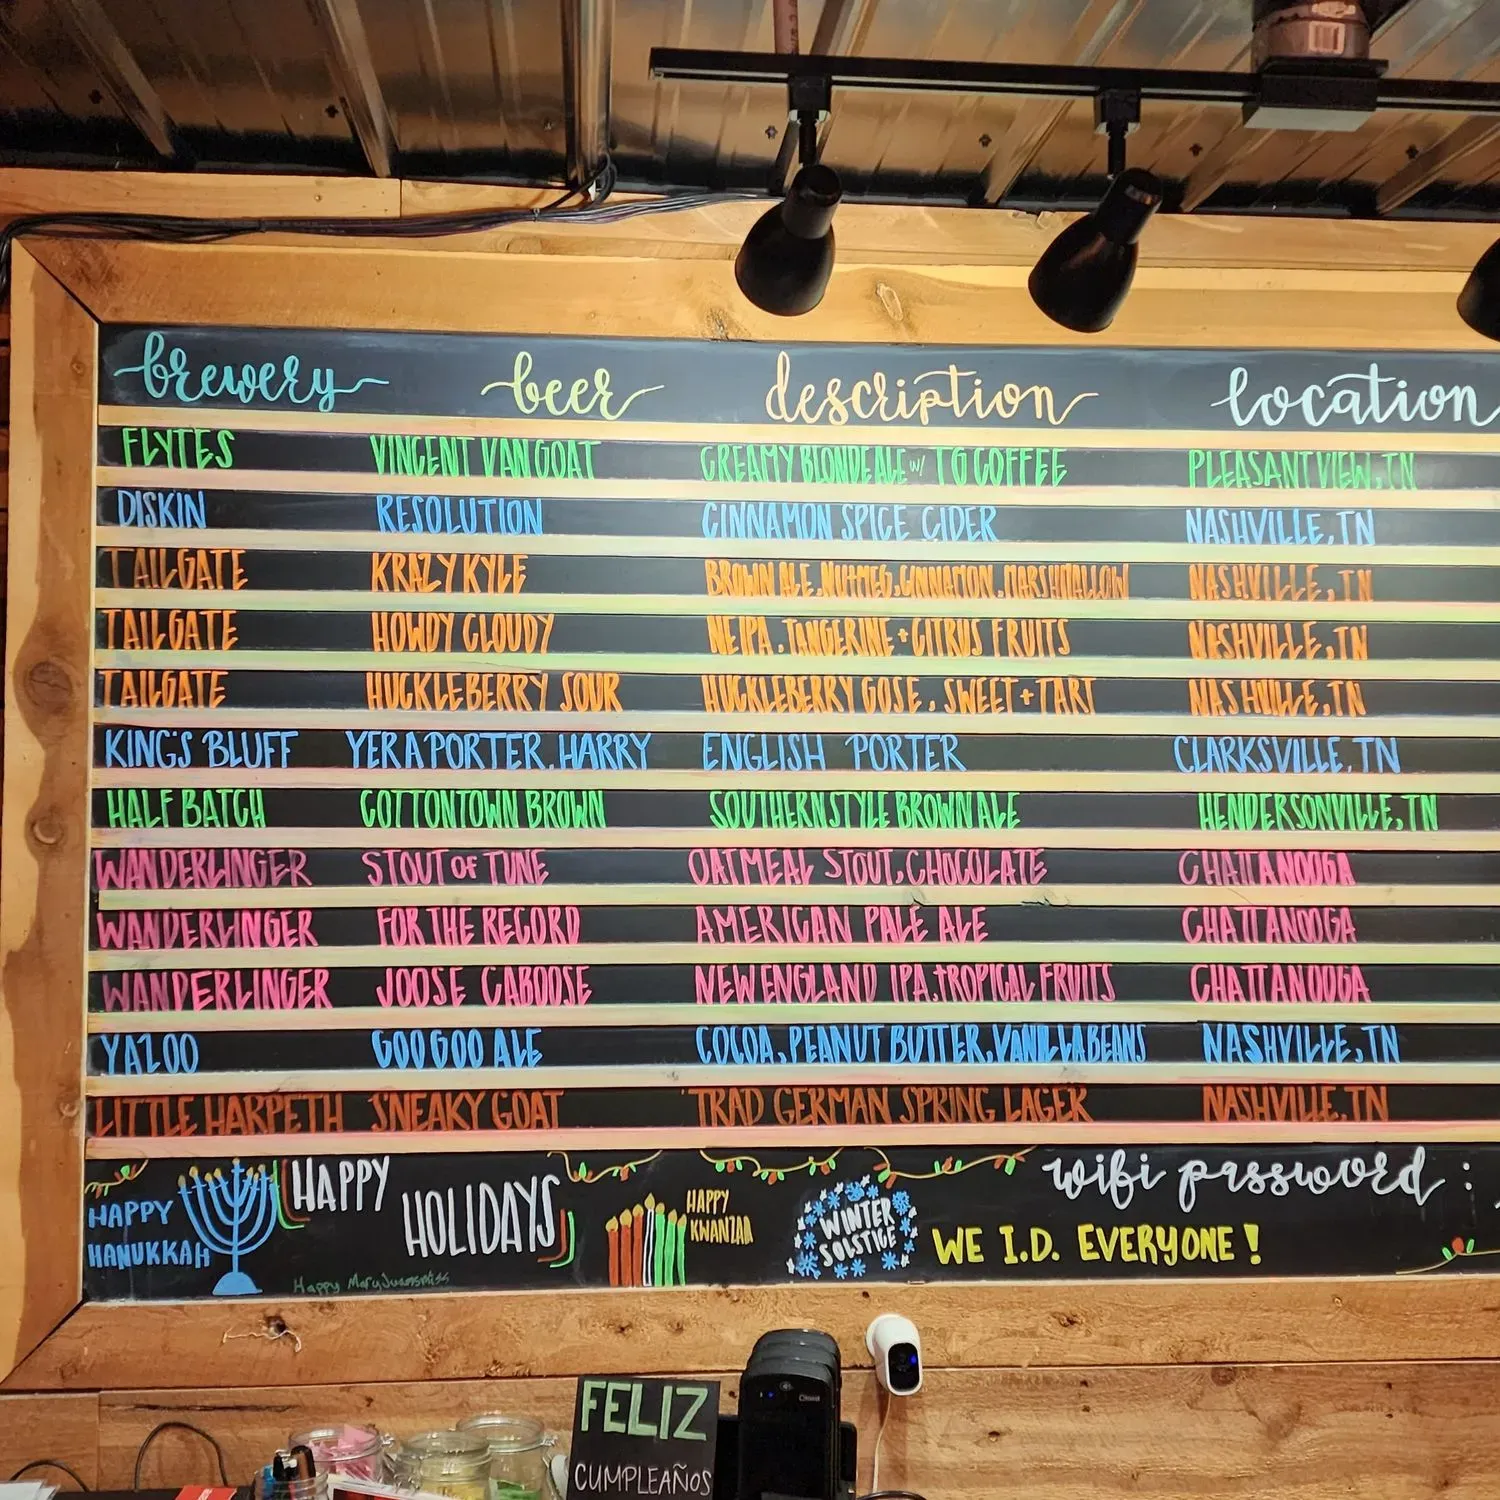 brewery beer description location
FLYTES VINCENT VAN GOAT CREAMY BLONDE ALE w/ TG COFFEE PLEASANT VIEW, TN
DISKIN RESOLUTION CINNAMON SPICE CIDER NASHVILLE, TN
TAILGATE KRAZY KYLE BROWN ALE, NUTMEG, CINNAMON, MARSHMALLOW NASHVILLE, TN
TAILGATE HOWDY CLOUDY NEIPA, TANGERINE + CITRUS FRUITS NASHVILLE, TN
TAILGATE HUCKLEBERRY SOUR HUCKLEBERRY GOSE, SWEET + TART NASHVILLE, TN
KING'S BLUFF YER A PORTER, HARRY ENGLISH PORTER CLARKSVILLE, TN
HALF BATCH COTTONTOWN BROWN SOUTHERN STYLE BROWN ALE HENDERSONVILLE, TN
WANDERLINGER STOUT OF TUNE OATMEAL STOUT, CHOCOLATE CHATTANOOGA
WANDERLINGER FOR THE RECORD AMERICAN PALE ALE CHATTANOOGA
WANDERLINGER JOOSE CABOOSE NEW ENGLAND IPA, TROPICAL FRUITS CHATTANOOGA
YAZOO GOO GOO ALE COCOA, PEANUT BUTTER, VANILLA BEANS NASHVILLE, TN
LITTLE HARPETH SNEAKY GOAT TRAD GERMAN SPRING LAGER NASHVILLE, TN
HAPPY
HANUKKAH
HAPPY
HOLIDAYS
Happy MaryJuanamiss
HAPPY
KWANZAA
WINTER
SOLSTICE
wifi password:
WE I.D. EVERYONE!
FELIZ
CUMPLEAÑOS